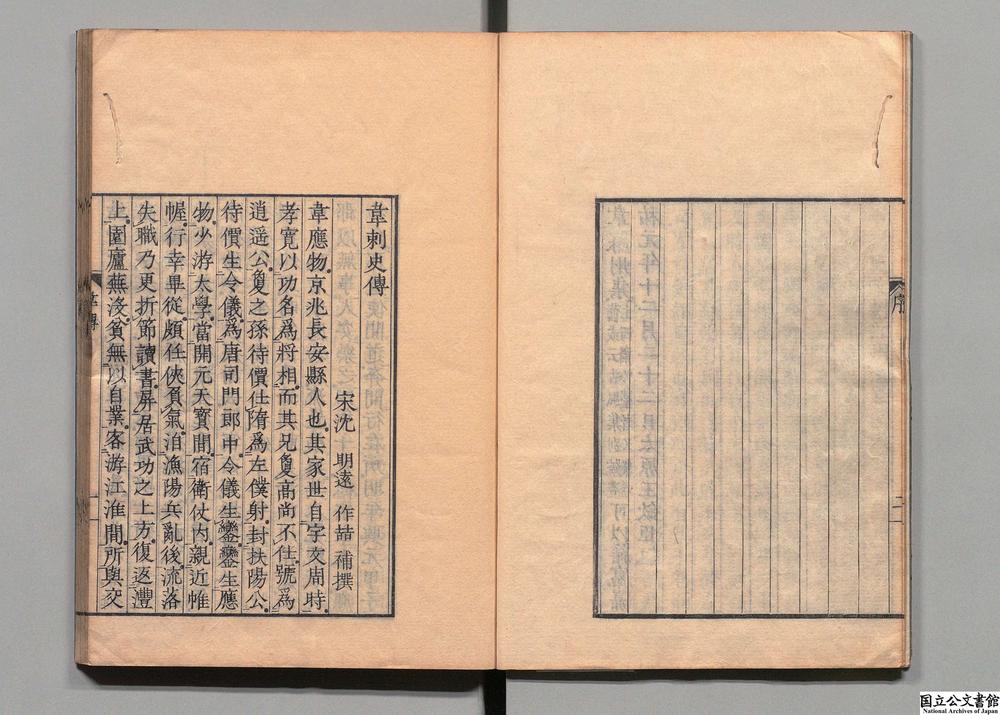 序
二
韋刺史傳
宋沈 明遠 作喆 補撰
韋應物京兆長安縣人也其家世自宇文周時
孝寬以功名爲將相而其兄敻高尚不仕號爲
逍遥公敻之孫待價仕隋爲左僕射封扶陽公
待價生令儀爲唐司門郎中令儀生鑾鑾生應
物少游太學當開元天寶間宿衛仗内親近帷
幄行幸畢從頗任俠負氣洎漁陽兵亂後流落
失職乃更折節讀書屏居武功之上方復返灃
上園廬蕪没貧無以自業客游江淮間所與交
韋傳
一
国立公文書館
National Archives of Japan